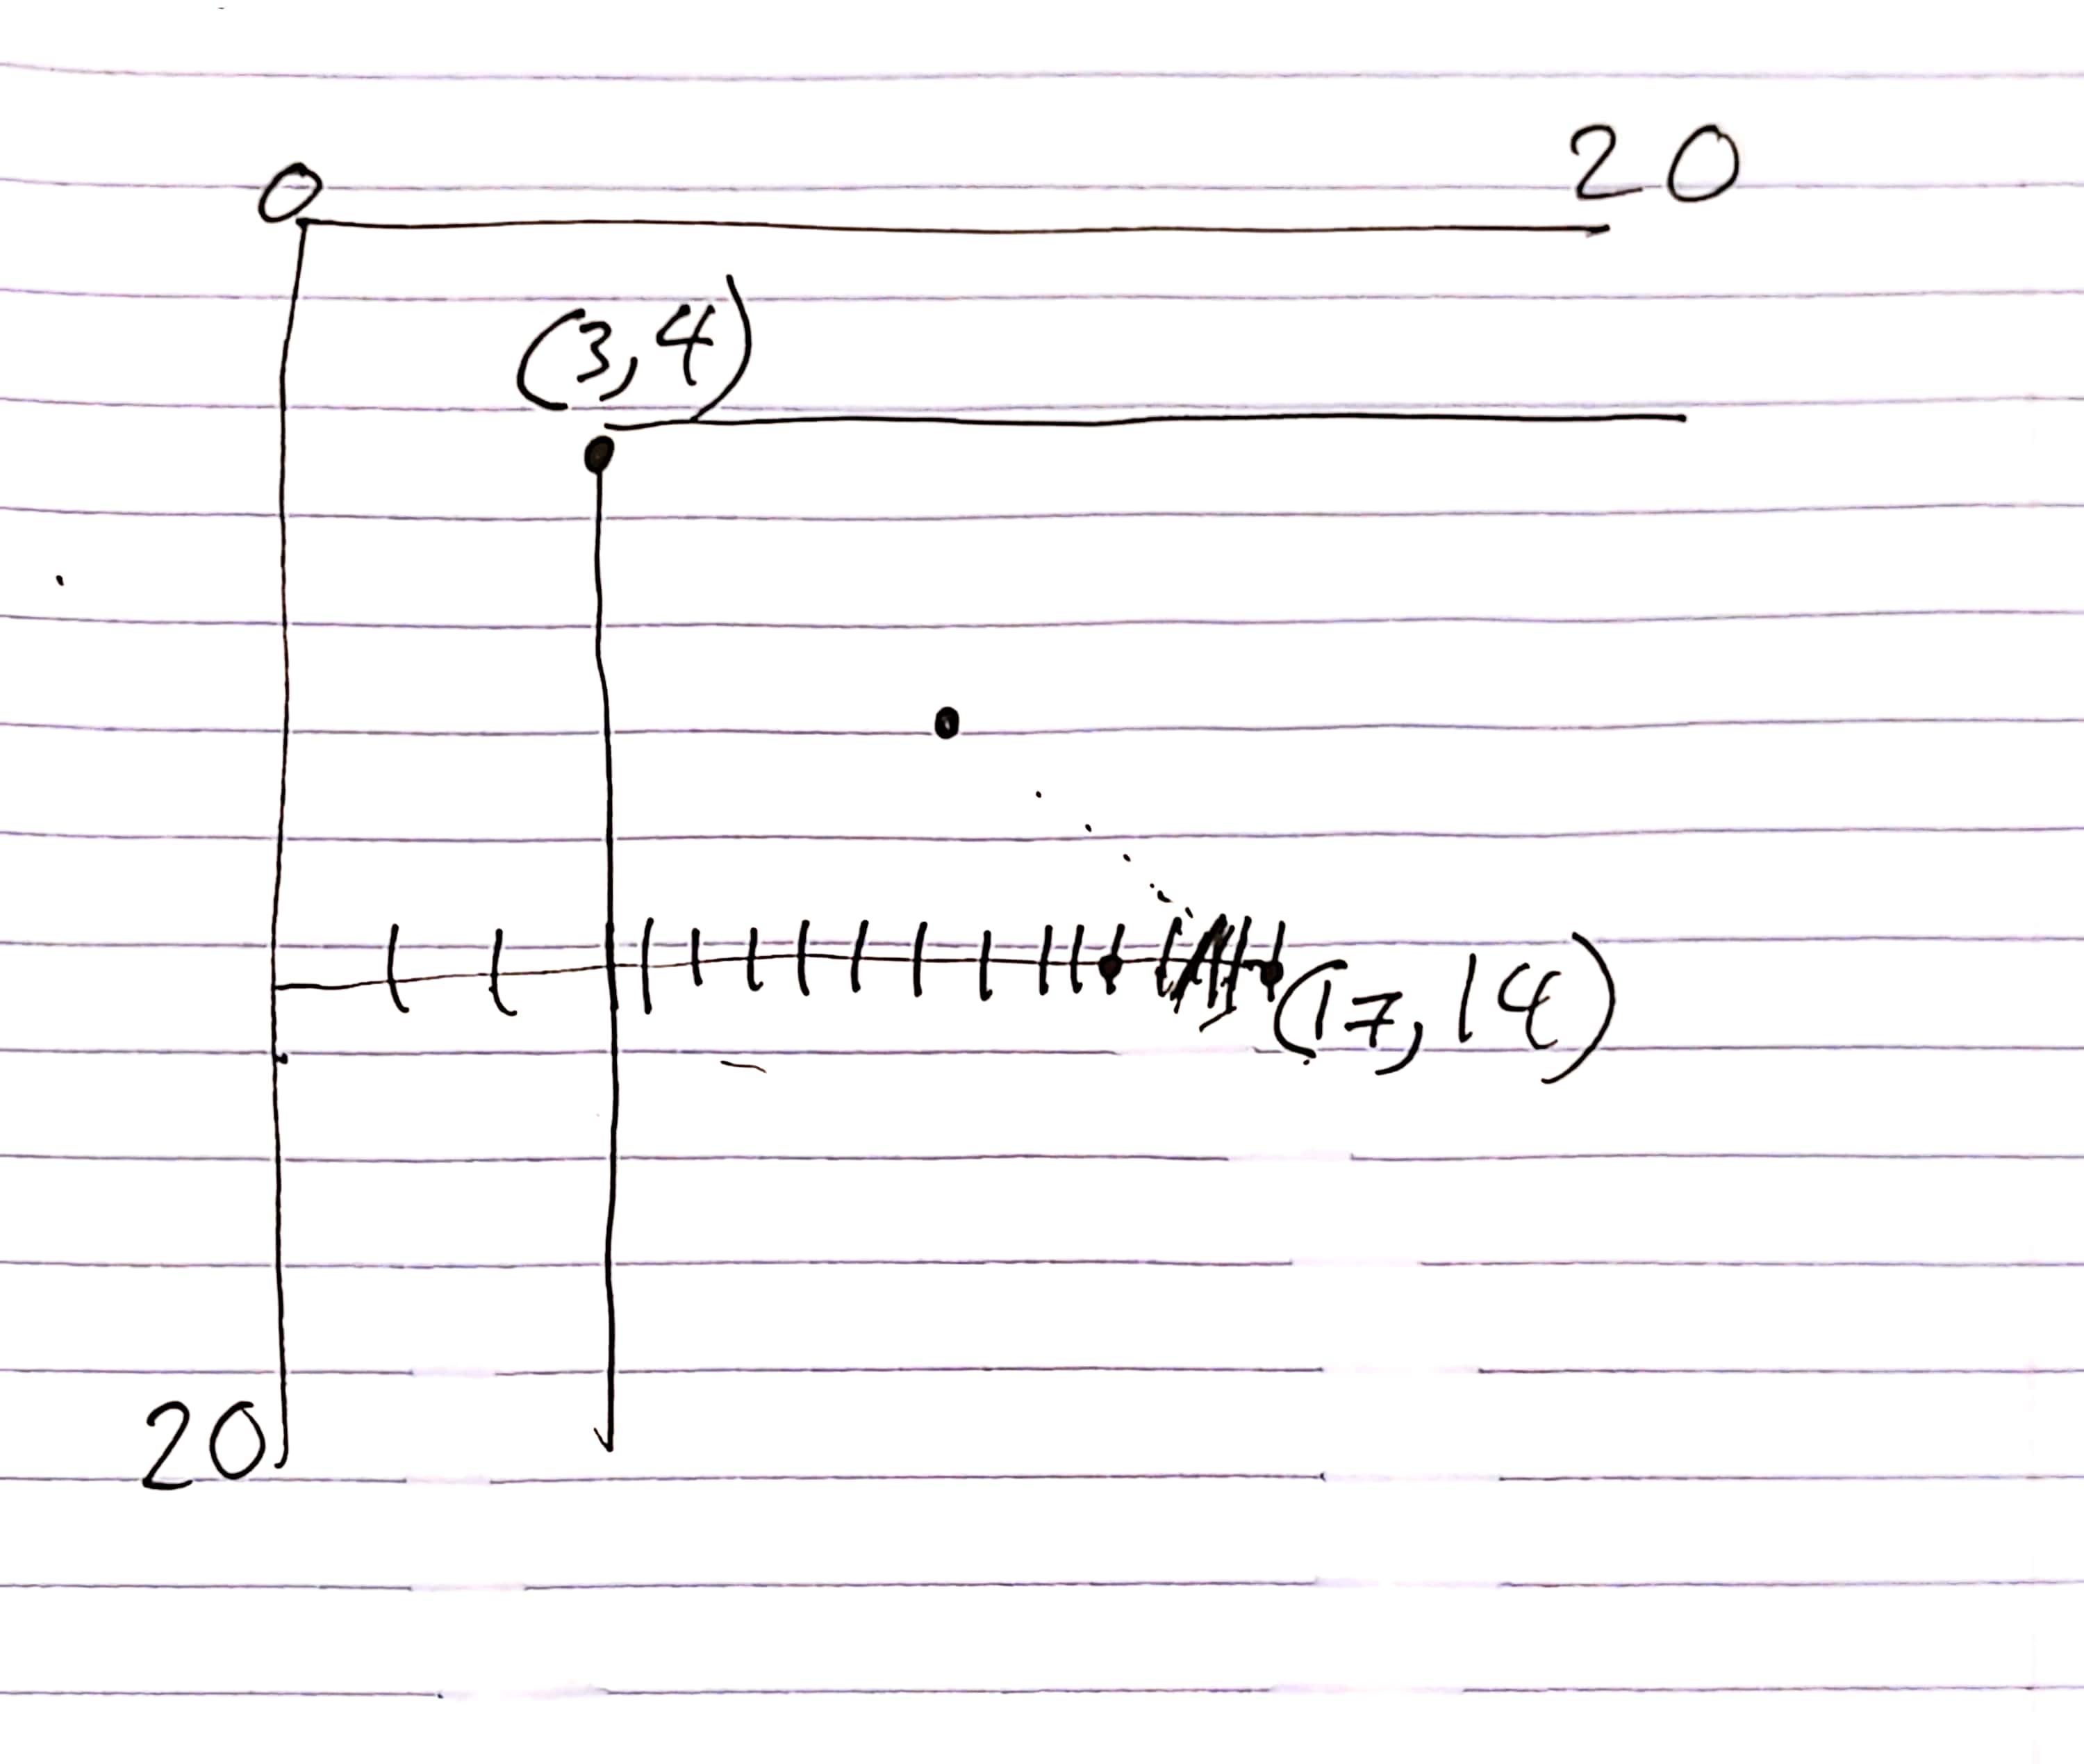 0 20
(3,4)
(17,14)
20